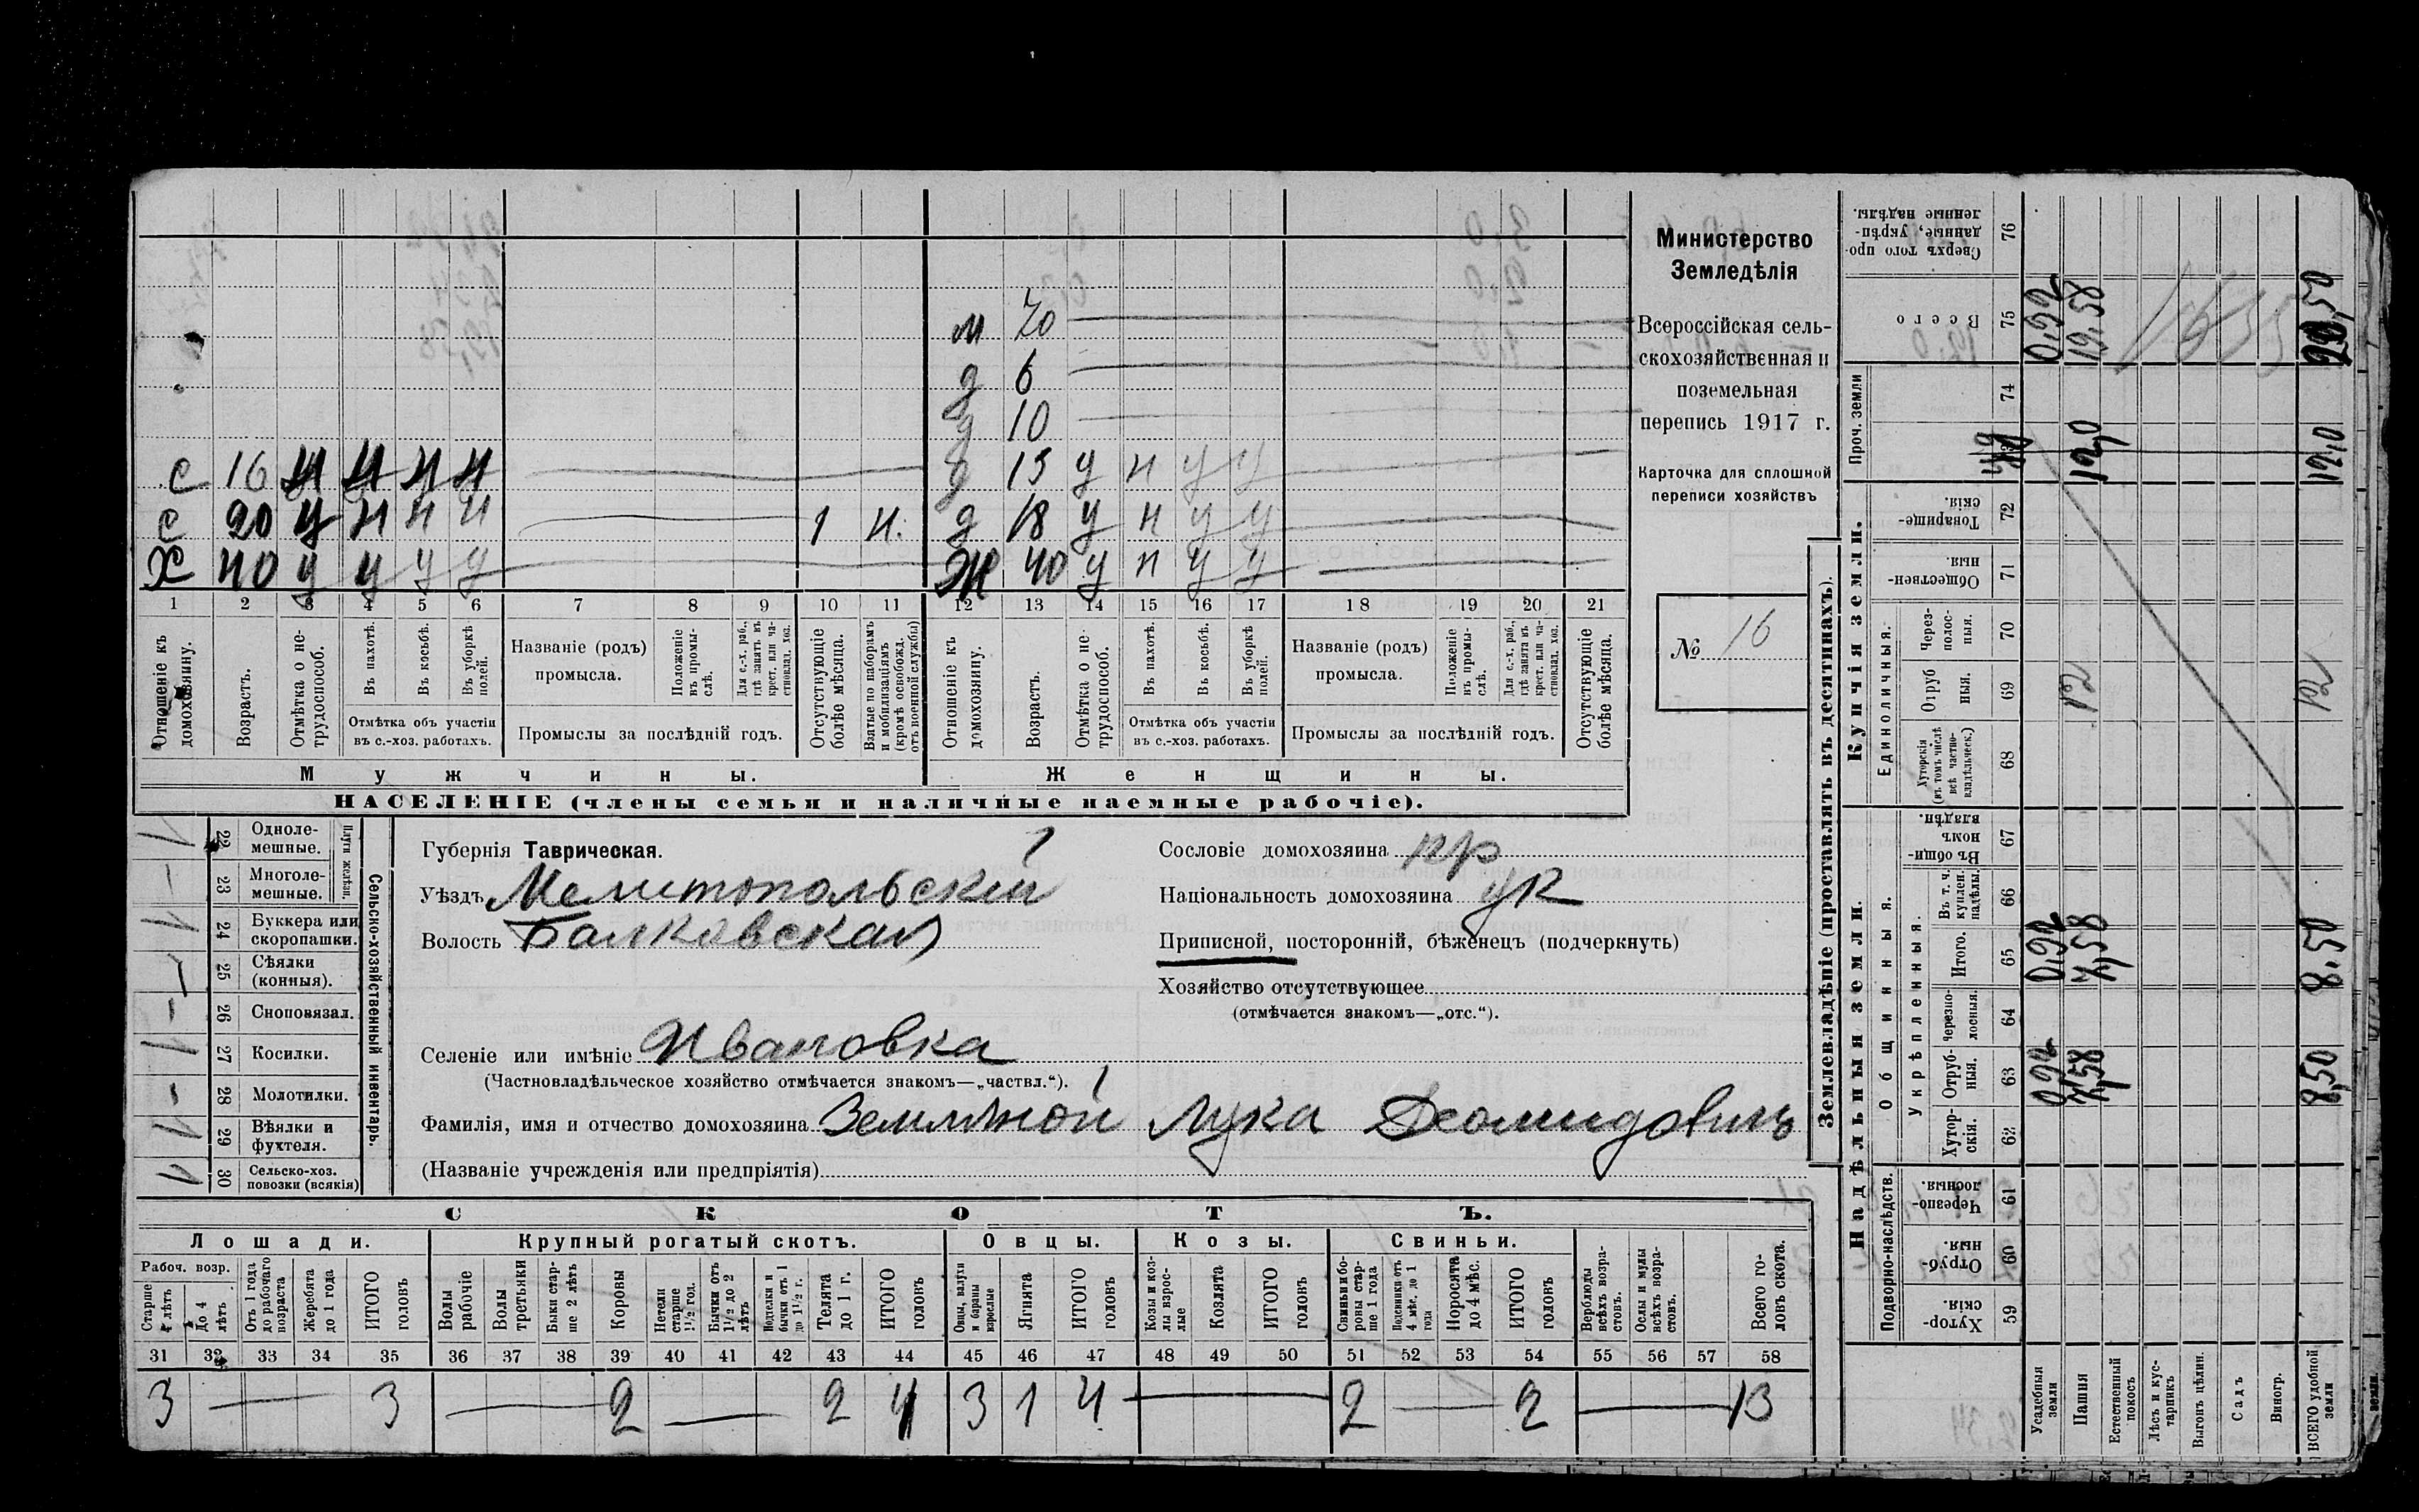 Министерство
Земледѣлія
Всероссійская сель-
скохозяйственная и
поземельная
перепись 1917 г.
Карточка для сплошной
переписи хозяйствъ
№ 16
м 70
д 6
д 10
с 16 н н н н д 13 у н у у
с 20 у н н н 1 н. д 18 у н у у
х 40 у у у у Ж 40 у н у у
1 2 3 4 5 6 7 8 9 10 11 12 13 14 15 16 17 18 19 20 21
Отношеніе къ домохозяину.
Возрастъ.
Отмѣтка о не-трудоспособ.
Въ пахотѣ.
Въ косьбѣ.
Въ уборкѣ полей.
Отмѣтка объ участіи
въ с.-хоз. работахъ.
Названіе (родъ)
промысла.
Положеніе въ промы-слѣ.
Для с.-х. раб., гдѣ занятъ въ крест. или ча-стновлад. хоз.
Промыслы за послѣдній годъ.
Отсутствующіе болѣе мѣсяца.
Взятые по наборамъ и мобилизаціямъ (кромѣ освобожд. отъ военной службы)
Отношеніе къ домохозяину.
Возрастъ.
Отмѣтка о не-трудоспособ.
Въ пахотѣ.
Въ косьбѣ.
Въ уборкѣ полей.
Отмѣтка объ участіи
въ с.-хоз. работахъ.
Названіе (родъ)
промысла.
Положеніе въ промы-слѣ.
Для с.-х. раб., гдѣ занята въ крест. или ча-стновлад. хоз.
Промыслы за послѣдній годъ.
Отсутствующіе болѣе мѣсяца.
Мужчины. Женщины.
НАСЕЛЕНІЕ (члены семьи и наличные наемные рабочіе).
Сельско-хозяйственный инвентарь.
Плуги желѣзн.
22 Одноле-мешные. 1
23 Многоле-мешные. —
24 Буккера или скоропашки. 1
25 Сѣялки (конныя). 1
26 Сноповязал. —
27 Косилки. 1
28 Молотилки. —
29 Вѣялки и фухтеля. 1
30 Сельско-хоз. повозки (всякія) 1
Губернія Таврическая.
Уѣздъ Мелитопольскій
Волость Балковская
Сословіе домохозяина кр
Національность домохозяина ук
Приписной, посторонній, бѣженецъ (подчеркнуть)
Хозяйство отсутствующее
(отмѣчается знакомъ—„отс.“).
Селеніе или имѣніе Ивановка
(Частновладѣльческое хозяйство отмѣчается знакомъ—„частвл.“).
Фамилія, имя и отчество домохозяина Земляной Лука Деомидовичъ
(Названіе учрежденія или предпріятія)
СКОТЪ.
Лошади. Крупный рогатый скотъ. Овцы. Козы. Свиньи.
Рабоч. возр.
Старше 4 лѣтъ
До 4 лѣтъ
Отъ 1 года до рабочаго возраста
Жеребята до 1 года
ИТОГО головъ
Волы рабочіе
Волы третьяки
Быки стар-ше 2 лѣтъ
Коровы
Нетели старше 1½ год.
Бычки отъ 1½ до 2 лѣтъ
Неделки и бычки отъ 1 до 1½ г.
Телята до 1 г.
ИТОГО головъ
Овцы, валухи и бараны взрослые
Ягнята
ИТОГО головъ
Козы и коз-лы взрос-лые
Козлята
ИТОГО головъ
Свиньи и бо-ровы стар-ше 1 года
Подсвинки отъ 4 мѣс. до 1 года
Поросята до 4 мѣс.
ИТОГО головъ
Верблюды всѣхъ возра-стовъ.
Ослы и мулы всѣхъ возра-стовъ.
Всего го-ловъ скота.
31 32 33 34 35 36 37 38 39 40 41 42 43 44 45 46 47 48 49 50 51 52 53 54 55 56 57 58
3 — 3 — 2 — 2 4 3 1 4 — 2 — 2 — 13
Землевладѣніе (проставлять въ десятинахъ).
Надѣльныя земли. Купчія земли. Проч. земли
Подворно-наслѣдств.
Общинныя.
Укрѣпленныя.
Единоличныя.
Хутор-скія. 59
Отруб-ныя. 60
Черезпо-лосныя. 61
Хутор-скія. 62
Отруб-ныя. 63
Черезпо-лосныя. 64
Итого. 65
Въ т. ч. куплен. надѣлы. 66
Въ общи-номъ владѣн. 67
Хуторскія (въ томъ числѣ всѣ частно-владѣльческ.) 68
Отрубныя. 69
Через-полос-ныя. 70
Обществен-ныя. 71
Товарище-скія. 72
74
Всего 75
Сверхъ того про-данные, укрѣп-ленные надѣлы. 76
Усадебныя земли 0,92 0,92 0,92
Пашня 7,58 7,58 12 12,0 19,58
Естественный покосъ
Лѣсъ и кус-тарникъ
Выгонъ цѣлин.
Садъ
Виногр.
ВСЕГО удобной земли 8,50 8,50 12 12,0 20,50
1635